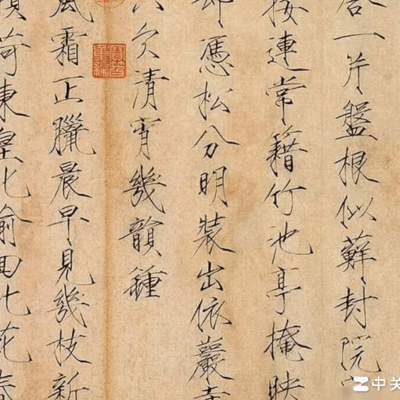 一片盤根似蘚封院
接連常籍竹池亭掩映
却憑松分明裝出依巖
欠清宵幾韻鍾
風霜正臘晨早見幾枝新
荷東皇
中关